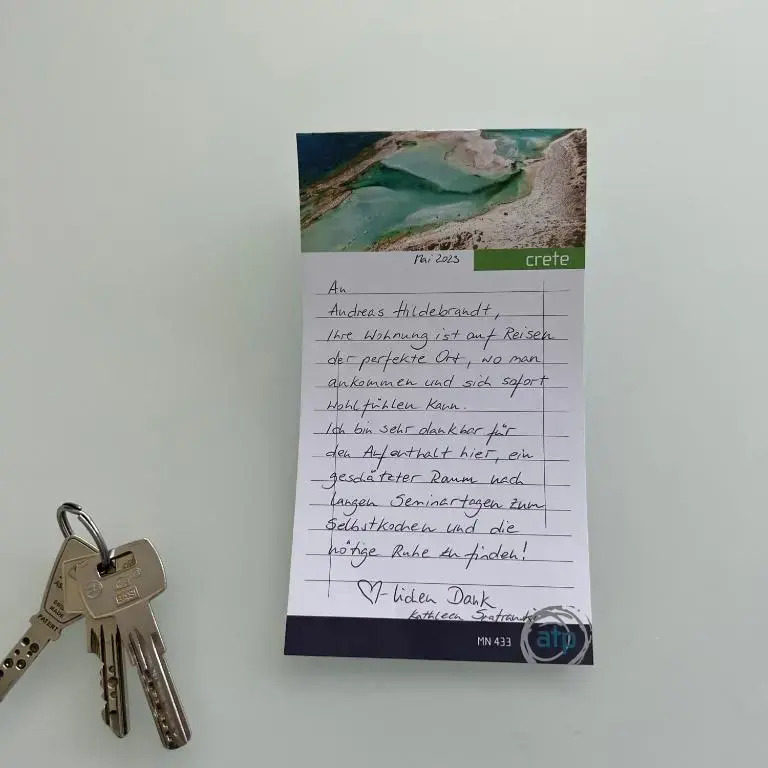 crete
Mai 2023
An
Andreas Hildebrandt,
Ihre Wohnung ist auf Reisen
der perfekte Ort, wo man
ankommen und sich sofort
wohlfühlen kann.
Ich bin sehr dankbar für
den Aufenthalt hier, ein
geschätzter Raum nach
langen Seminartagen zum
Selbstkochen und die
nötige Ruhe zu finden!
♡-lichen Dank
Kathleen
MN 433
atp